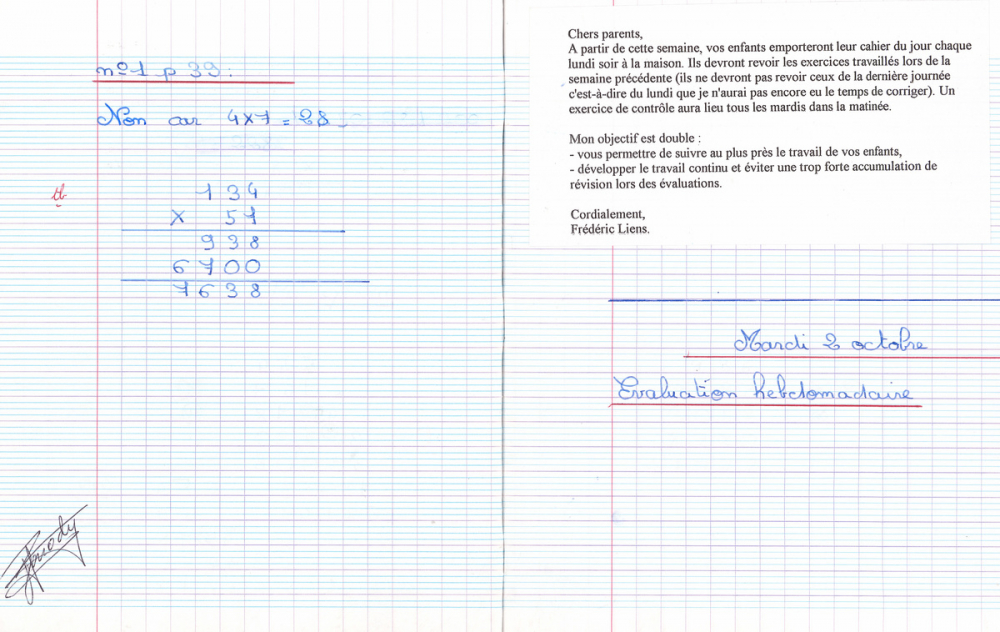 n°1 p 39 :
Non car 4x7 = 28
tb
134
x 57
938
6700
7638
Chers parents,
A partir de cette semaine, vos enfants emporteront leur cahier du jour chaque
lundi soir à la maison. Ils devront revoir les exercices travaillés lors de la
semaine précédente (ils ne devront pas revoir ceux de la dernière journée
c'est-à-dire du lundi que je n'aurai pas encore eu le temps de corriger). Un
exercice de contrôle aura lieu tous les mardis dans la matinée.
Mon objectif est double :
- vous permettre de suivre au plus près le travail de vos enfants,
- développer le travail continu et éviter une trop forte accumulation de
révision lors des évaluations.
Cordialement,
Frédéric Liens.
Mardi 2 octobre
Evaluation hebdomadaire